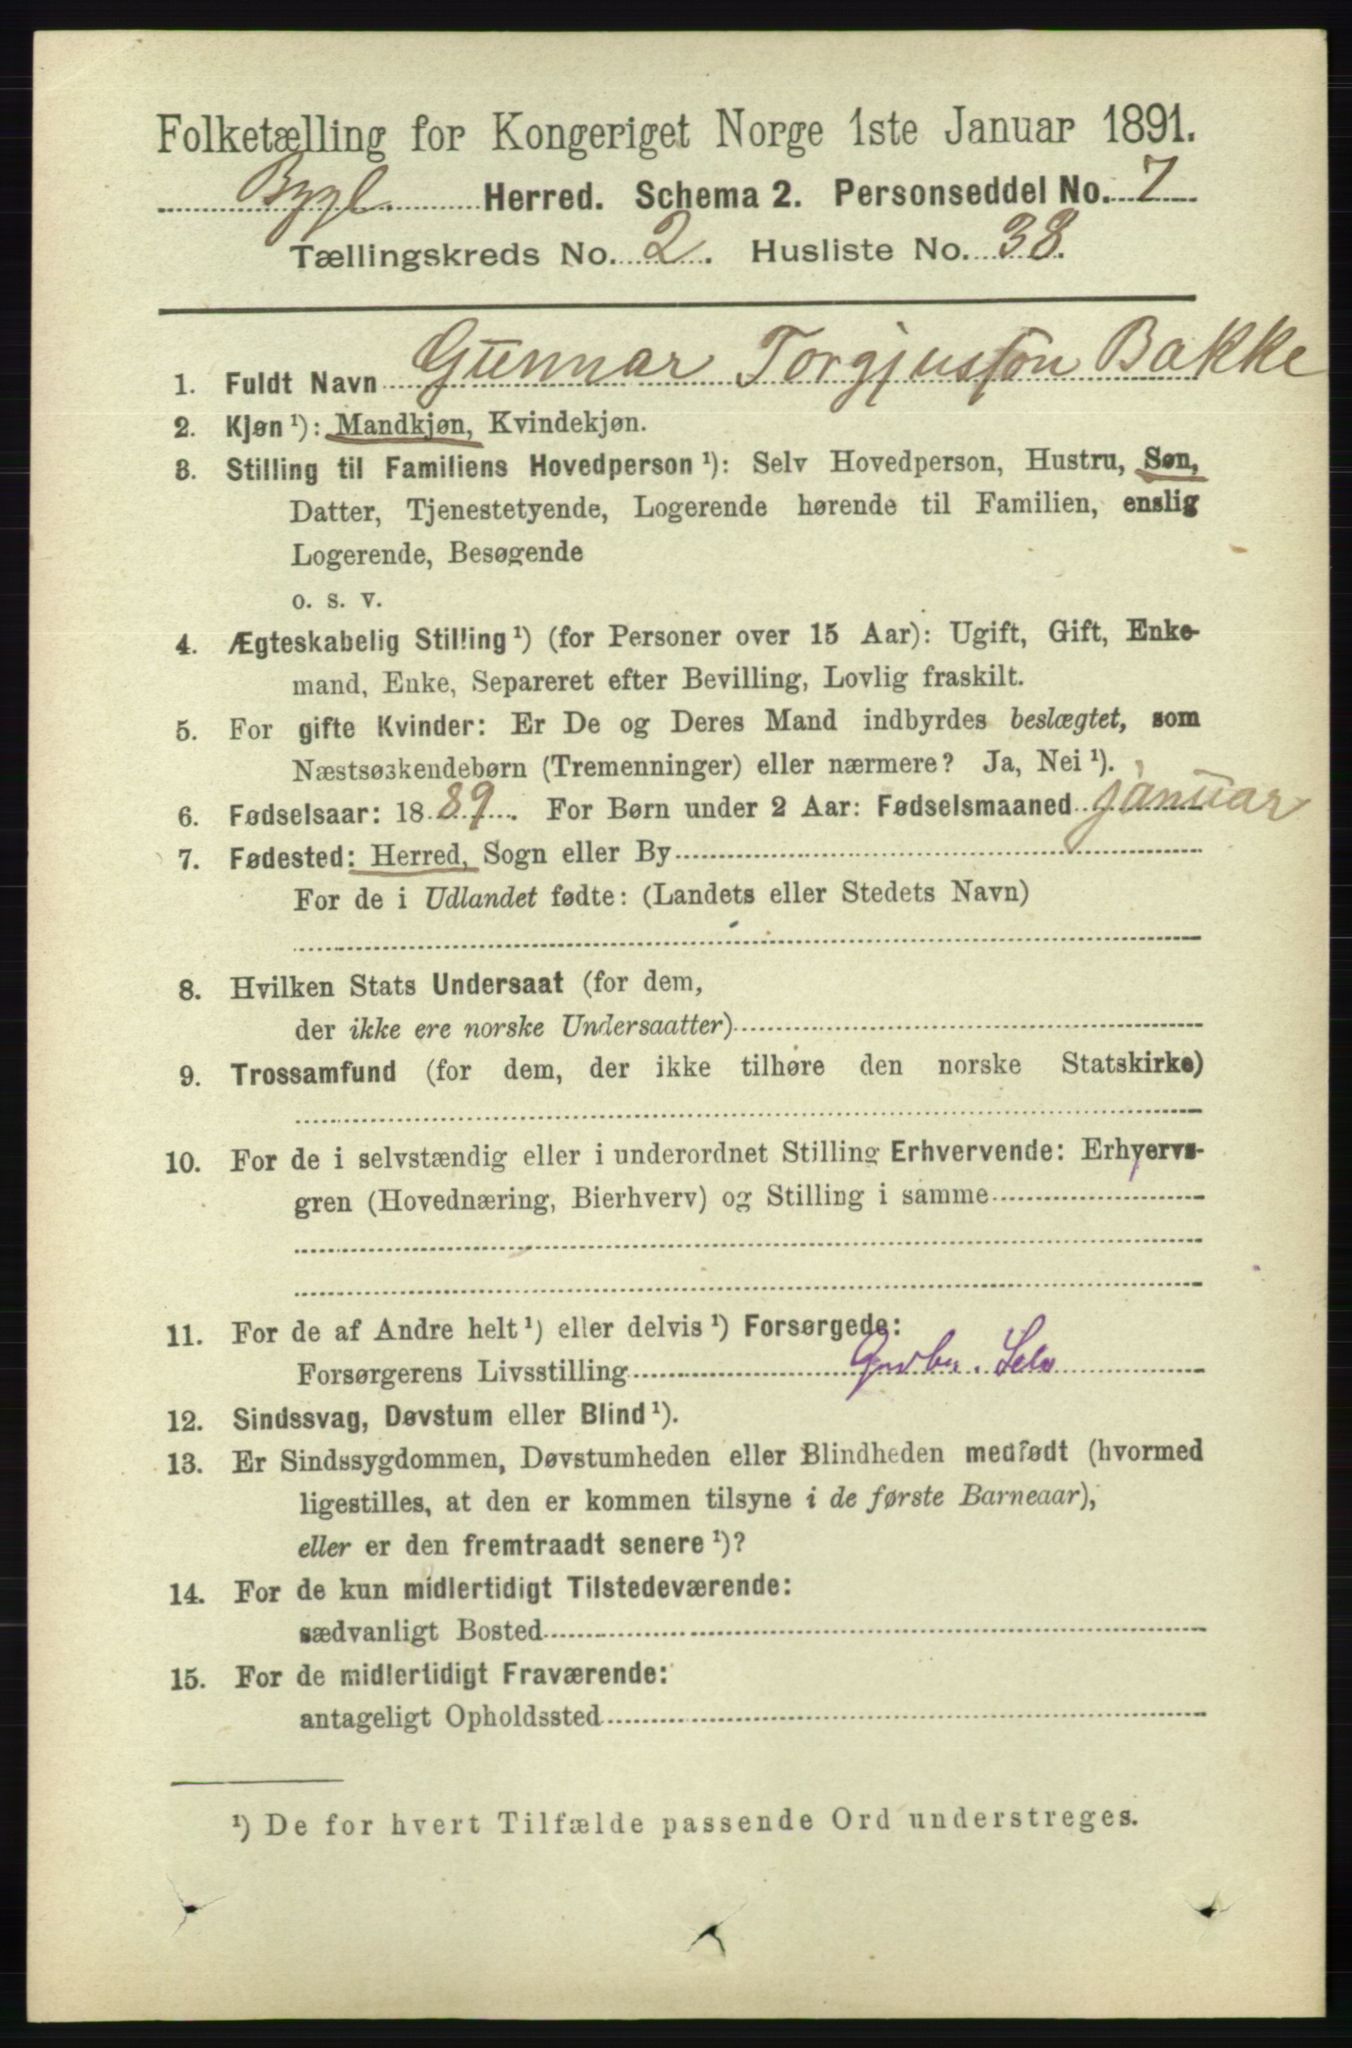 Folketælling for Kongeriget Norge 1ste Januar 1891.
Bygl. Herred. Schema 2. Personseddel No. 7
Tællingskreds No. 2. Husliste No. 38.
1. Fuldt Navn Gunnar Torgjussøn Bakke
2. Kjøn ¹): Mandkjøn, Kvindekjøn.
3. Stilling til Familiens Hovedperson ¹): Selv Hovedperson, Hustru, Søn,
Datter, Tjenestetyende, Logerende hørende til Familien, enslig
Logerende, Besøgende
o. s. v.
4. Ægteskabelig Stilling ¹) (for Personer over 15 Aar): Ugift, Gift, Enke-
mand, Enke, Separeret efter Bevilling, Lovlig fraskilt.
5. For gifte Kvinder: Er De og Deres Mand indbyrdes beslægtet, som
Næstsøskendebørn (Tremenninger) eller nærmere? Ja, Nei ¹).
6. Fødselsaar: 1889. For Børn under 2 Aar: Fødselsmaaned januar
7. Fødested: Herred, Sogn eller By
For de i Udlandet fødte: (Landets eller Stedets Navn)
8. Hvilken Stats Undersaat (for dem,
der ikke ere norske Undersaatter)
9. Trossamfund (for dem, der ikke tilhøre den norske Statskirke)
10. For de i selvstændig eller i underordnet Stilling Erhvervende: Erhvervs-
gren (Hovednæring, Bierhverv) og Stilling i samme
11. For de af Andre helt ¹) eller delvis ¹) Forsørgede:
Forsørgerens Livsstilling Selv
12. Sindssvag, Døvstum eller Blind ¹).
13. Er Sindssygdommen, Døvstumheden eller Blindheden medfødt (hvormed
ligestilles, at den er kommen tilsyne i de første Barneaar),
eller er den fremtraadt senere ¹)?
14. For de kun midlertidigt Tilstedeværende:
sædvanligt Bosted
15. For de midlertidigt Fraværende:
antageligt Opholdssted
¹) De for hvert Tilfælde passende Ord understreges.